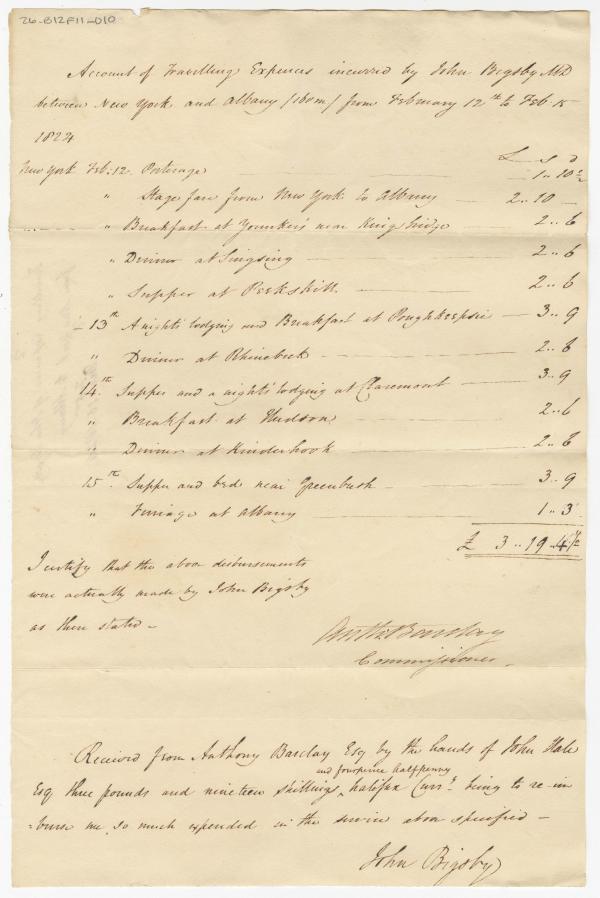 26-B12F11-010
Account of Travelling Expences incurred by John Bigsby MD
between New York and Albany (160 m) from February 12th to Feb 15
1824
£ s d
New York Feb: 12. Porterage 1 .. 10 ½
" Stage fare from New York to Albany 2 .. 10 —
" Breakfast at Younker's near Kingbridge 2 .. 6
" Dinner at Singsing 2 .. 6
" Supper at Peekskill 2 .. 6
- 13th A night's lodging and Breakfast at Poughkeepsie 3 .. 9
" Dinner at Rhinebeck 2 .. 6
14th Supper and a night's lodging at Claremont 3 .. 9
" Breakfast at Hudson 2 .. 6
" Dinner at Kinderhook 2 .. 6
15th Supper and bed near Greenbush 3 .. 9
" Ferriage at Albany 1 .. 3
£ 3 .. 19 .. 4 ½
I certify that the above disbursements
were actually made by John Bigsby
as there stated -
Anth: Barclay
Commissioner.
Received from Anthony Barclay Esq by the hands of John Hale
and fourpence halfpenny
Esq three pounds and nineteen shillings ^ halifax Curry being to re-im
=burse me so much expended in the service above specified -
John Bigsby